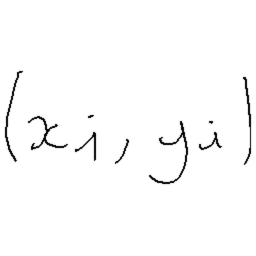 (x_i, y_i)